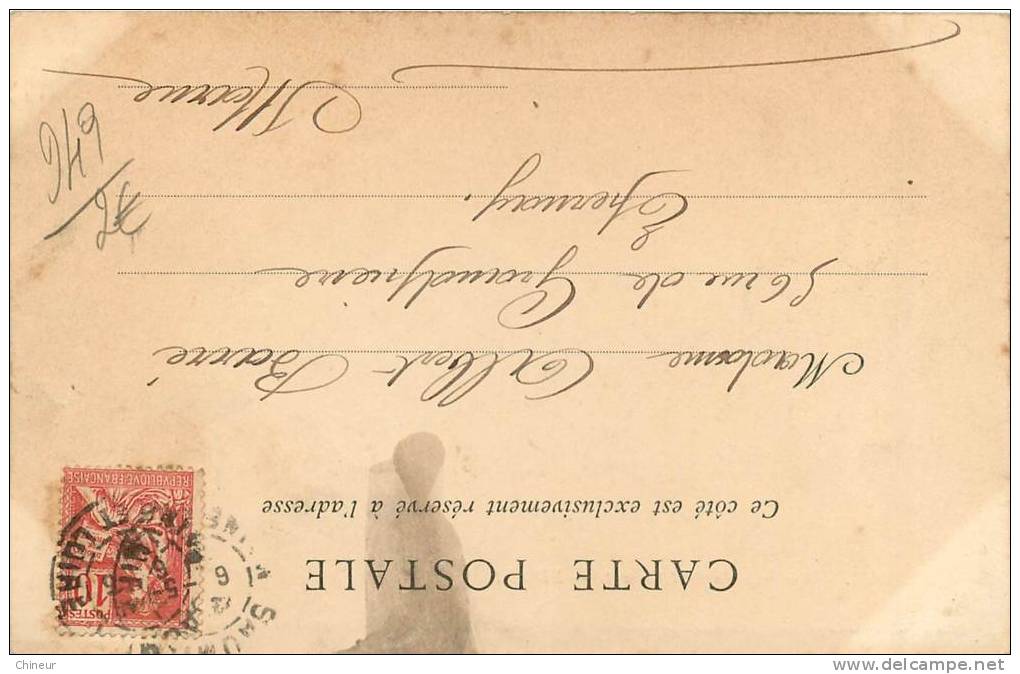 CARTE POSTALE
Ce côté est exclusivement réservé à l'adresse
Madame Albert Barré
56 rue de Grandpierre
Épernay.
Marne
REPVBLIQVE FRANÇAISE
POSTES
10
SAUMUR
Chineur
www.delcampe.net